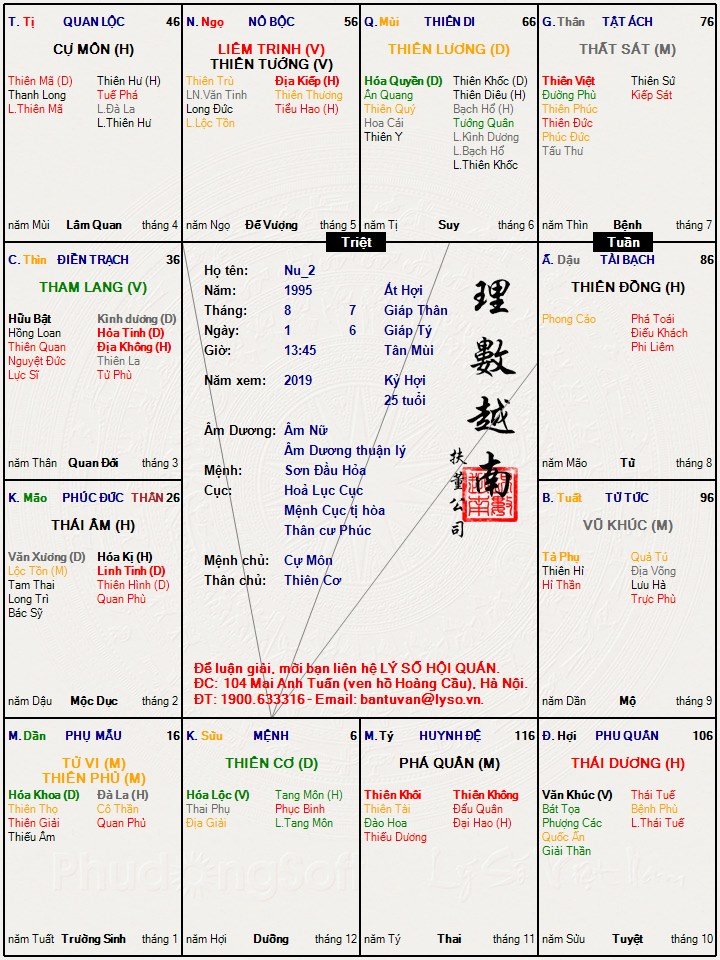 T. Tị QUAN LỘC 46
CỰ MÔN (H)
Thiên Mã (D) Thiên Hư (H)
Thanh Long Tuế Phá
L.Thiên Mã L.Đà La
L.Thiên Hư
năm Mùi Lâm Quan tháng 4
N. Ngọ NÔ BỘC 56
LIÊM TRINH (V)
THIÊN TƯỚNG (V)
Thiên Trù Địa Kiếp (H)
LN.Văn Tinh Thiên Thương
Long Đức Tiểu Hao (H)
L.Lộc Tồn
năm Ngọ Đế Vượng tháng 5
Q. Mùi THIÊN DI 66
THIÊN LƯƠNG (D)
Hóa Quyền (D) Thiên Khốc (D)
Ân Quang Thiên Diêu (H)
Thiên Quý Bạch Hổ (H)
Hoa Cái Tướng Quân
Thiên Y L.Kình Dương
L.Bạch Hổ
L.Thiên Khốc
năm Tị Suy tháng 6
G. Thân TẬT ÁCH 76
THẤT SÁT (M)
Thiên Việt Thiên Sứ
Đường Phù Kiếp Sát
Thiên Phúc
Thiên Đức
Phúc Đức
Tấu Thư
năm Thìn Bệnh tháng 7
Triệt
Tuần
C. Thìn ĐIỀN TRẠCH 36
THAM LANG (V)
Hữu Bật Kình dương (D)
Hồng Loan Hỏa Tinh (D)
Thiên Quan Địa Không (H)
Nguyệt Đức Thiên La
Lực Sĩ Tử Phù
năm Thân Quan Đới tháng 3
Họ tên: Nu_2
Năm: 1995 Ất Hợi
Tháng: 8 7 Giáp Thân
Ngày: 1 6 Giáp Tý
Giờ: 13:45 Tân Mùi
Năm xem: 2019 Kỷ Hợi
25 tuổi
Âm Dương: Âm Nữ
Âm Dương thuận lý
Mệnh: Sơn Đầu Hỏa
Cục: Hoả Lục Cục
Mệnh Cục tị hòa
Thân cư Phúc
Mệnh chủ: Cự Môn
Thân chủ: Thiên Cơ
理數越南
扶董公司
Để luận giải, mời bạn liên hệ LÝ SỐ HỘI QUÁN.
ĐC: 104 Mai Anh Tuấn (ven hồ Hoàng Cầu), Hà Nội.
ĐT: 1900.633316 - Email: bantuvan@lyso.vn.
Ấ. Dậu TÀI BẠCH 86
THIÊN ĐỒNG (H)
Phong Cáo Phá Toái
Điếu Khách
Phi Liêm
năm Mão Tử tháng 8
K. Mão PHÚC ĐỨC THÂN 26
THÁI ÂM (H)
Văn Xương (D) Hóa Kị (H)
Lộc Tồn (M) Linh Tinh (D)
Tam Thai Thiên Hình (D)
Long Trì Quan Phù
Bác Sỹ
năm Dậu Mộc Dục tháng 2
B. Tuất TỬ TỨC 96
VŨ KHÚC (M)
Tả Phụ Quả Tú
Thiên Hỉ Địa Võng
Hỉ Thần Lưu Hà
Trực Phù
năm Dần Mộ tháng 9
M. Dần PHỤ MẪU 16
TỬ VI (M)
THIÊN PHỦ (M)
Hóa Khoa (D) Đà La (H)
Thiên Thọ Cô Thần
Thiên Giải Quan Phủ
Thiếu Âm
năm Tuất Trường Sinh tháng 1
K. Sửu MỆNH 6
THIÊN CƠ (D)
Hóa Lộc (V) Tang Môn (H)
Thai Phụ Phục Binh
Địa Giải L.Tang Môn
năm Hợi Dưỡng tháng 12
M. Tý HUYNH ĐỆ 116
PHÁ QUÂN (M)
Thiên Khôi Thiên Không
Thiên Tài Đẩu Quân
Đào Hoa Đại Hao (H)
Thiếu Dương
năm Tý Thai tháng 11
Đ. Hợi PHU QUÂN 106
THÁI DƯƠNG (H)
Văn Khúc (V) Thái Tuế
Bát Tọa Bệnh Phù
Phượng Các L.Thái Tuế
Quốc Ấn
Giải Thần
năm Sửu Tuyệt tháng 10
PhudongSoft
Lý Số Việt Nam